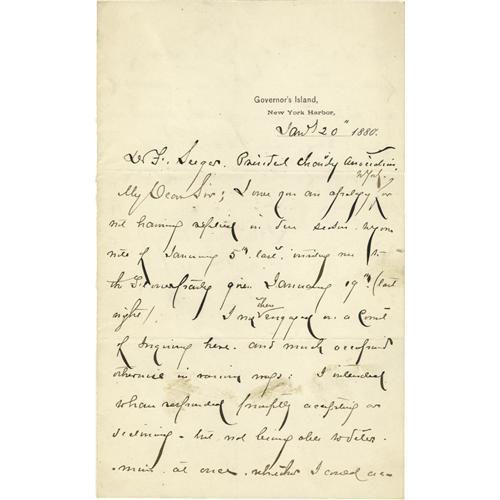 Governor's Island,
New York Harbor,
Jany 20" 1880.
Dr F. Seeger. President Charity Association
N York.
My Dear Sir; I owe you an apology for
not having replied in due season to your
note of January 5th last, inviting me to
the given January 19th. (last
night). I was then engaged on a Court
of Inquiry here. and much occupied
otherwise in various ways: I intended
to have responded promptly accepting or
declining - but not being able to deter-
-mine at once, whether I could ac-